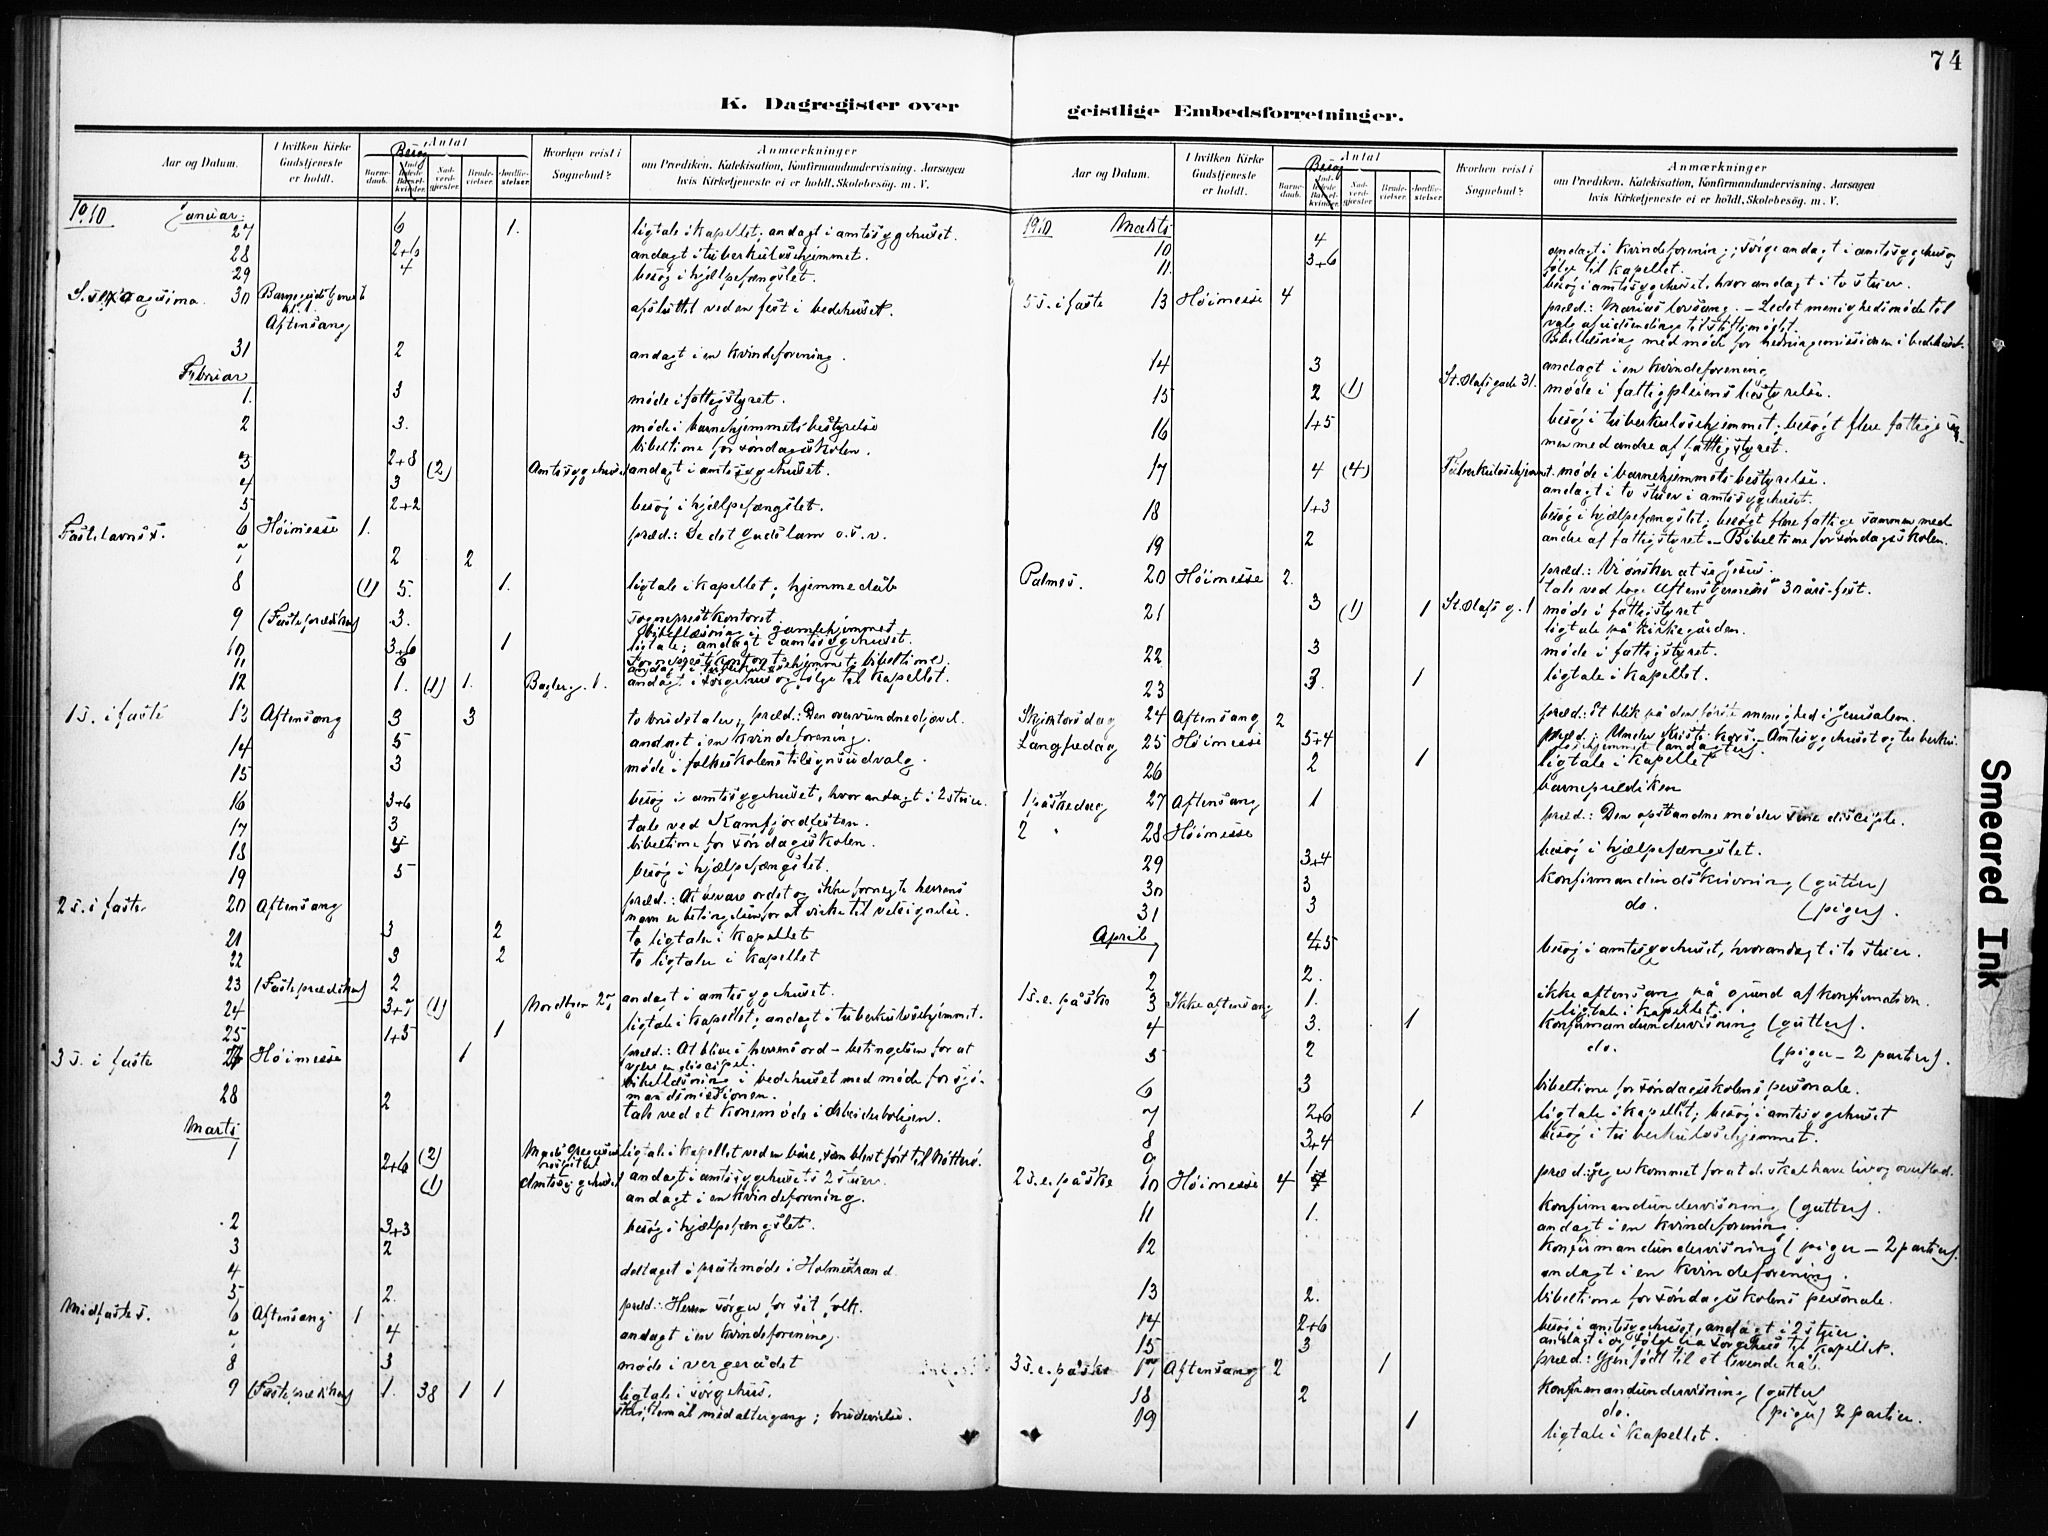 74
K. Dagregister over
geistlige Embedsforretninger.
Aar og Datum.
I hvilken Kirke Gudstjeneste er holdt.
Antal
Besøg
Barnedaab.
Indledede Barselkvinder.
Nadverdgjester.
Brudevielser.
Jordfæstelser.
Hvorhen reist i Sognebud?
Anmærkninger
om Prædiken, Katekisation, Konfirmandundervisning, Aarsagen
hvis Kirketjeneste ei er holdt, Skolebesøg. m. V.
1910 Januar.
27 6 1. ligtale i kapellet; andagt i amtssygehuset.
28 2+6 andagt i tuberkulosehjemmet.
29 4 besøg i hjælpefængslet.
S. sexagesima. 30 Barnegudstjeneste
Aftensang afsluttet ved en fest i bedehuset.
31 2 andagt i en kvindeforening.
Februar
1. 3 møde i fattigstyret.
2 3. møde i barnehjemmets bestyrelse
bibeltime for søndagsskolen.
3 2+8 (2) Amtssygehuset andagt i amtssygehuset.
4 3
5 2+2 besøg i hjælpefængslet.
Fastelavnss. 6 Høimesse 1. præd.: Se det guds lam o.s.v.
7 2 2
8 (1) 5. 1. ligtale i kapellet; hjemmedåb
9 (Fasteprædiken) 3. sogneprestkontoret.
bibellæsning i gamlehjemmet
10 3+6 1 ligtale; andagt i amtssygehuset.
11 6
12 1. (1) 1. Bagler g. 1. andagt i sørgehus og følge til kapellet.
1 S. i faste 13 Aftensang 3 3 to brudetaler, præd.: Den overvundne djævel.
14 5 andagt i en kvindeforening.
15 3 møde i folkeskolens tilsynsudvalg.
16 3+6 besøg i amtssygehuset, hvor andagt i 2 stuer.
17 3 tale ved Kamfjordfesten.
18 5 bibeltime for søndagsskolen.
19 5 besøg i hjælpefængslet.
2 S. i faste 20 Aftensang præd.: At bevare ordet og ikke fornegte herrens
navn er betingelsen for at virke til velsignelse.
21 3 2 to ligtaler i kapellet
22 3 2 to ligtaler i kapellet
23 (Fasteprædiken) 2
24 3+7 (1) andagt i amtssygehuset.
25 1+5 1 ligtale i kapellet; andagt i tuberkulosehjemmet.
3 S. i faste 27 Høimesse 1 præd.: At blive i herrens ord – betingelsen for at
være en discipel.
bibellæsning i bedehuset med møde for sjø-
mandsmissionen.
28 2 tale ved et konemøde i Arbeiderboligen.
Marts
1 2+6 (2) ligtale i kapellet ved en båre, som blev ført til Nøtterø.
(1) Amtssygehuset andagt i amtssygehusets 2 stuer.
andagt i en kvindeforening.
2 3+3 besøg i hjælpefængslet.
3 2
4 deltaget i prestemøde i Holmestrand
5 2.
Midfastes. 6 Aftensang 1 præd.: Herren sørger for sit folk.
7 4 andagt i en kvindeforening.
8 3 møde i vergerådet
9 (Fasteprædiken) 1. 38 1 1 ligtale i sørgehus.
Skriftemål med altergang; brudevielse.
Aar og Datum.
I hvilken Kirke Gudstjeneste er holdt.
Antal
Besøg
Barnedaab.
Indledede Barselkvinder.
Nadverdgjester.
Brudevielser.
Jordfæstelser.
Hvorhen reist i Sognebud?
Anmærkninger
om Prædiken, Katekisation, Konfirmandundervisning, Aarsagen
hvis Kirketjeneste ei er holdt, Skolebesøg. m. V.
1910 Marts
10 4 andagt i kvindeforening; sørgeandagt i amtssygehus og
følge til kapellet.
11. 3+6 besøg i amtssygehuset, hvor andagt i to stuer.
5 S. i faste 13 Høimesse 4 præd.: Marias lovsang. – Ledet menighedsmøde til
valg af udsendinge til stiftsmødet.
Bibellæsning med møde for hedningemissionen i bedehuset.
14 3 andagt i en kvindeforening
15 2 (1) St. Olafs gade 31. møde i fattigpleiens bestyrelse.
16 1+5 besøg i tuberkulosehjemmet. besøgt flere fattige sam-
men med andre af fattigstyret.
17 4 (4) Tuberkulosehjemmet. møde i barnehjemmets bestyrelse.
andagt i to stuer i amtssygehuset.
18 1+3 besøg i hjælpefængslet; besøgt flere fattige sammen med
19 2 andre af fattigstyret. – Bibeltime for søndagsskolen.
Palmes. 20 Høimesse 2. præd.: Vi ønsker at se Jesus.
tale ved loge Aftenstjernens 30 års-fest.
21 3 (1) 1 St. Olafs g. 1 møde i fattigstyret
ligtale på kirkegården.
22 3 møde i fattigstyret.
23 3. 1 ligtale i kapellet.
Skjærtorsdag 24 Aftensang 2 præd.: Et blik på den første menighed i Jerusalem.
Langfredag 25 Høimesse 5+4 præd.: Under Kristi kors. – Amtssygehuset og tuberku-
losehjemmet (andagter)
26 2 1 ligtale i kapellet
1 påskedag 27 Aftensang 1 barneprædiken
2 " 28 Høimesse præd.: Den opstandne møder sine disciple.
29 3+4 besøg i hjælpefængslet.
30 3 konfirmandindskrivning (gutter)
31 3 do. (piger).
April
1 4+5 besøg i amtssygehuset, hvor andagt i to stuer.
2 2.
1 S. e. påske 3 Ikke aftensang 1. ikke aftensang på grund af konfirmation.
ligtale i kapellet.
4 3. 1 konfirmandundervisning (gutter).
5 2 do. (piger – 2 partier).
6 3 bibeltime for søndagsskolens personale.
7 2+6 1 ligtale i kapellet; besøg i amtssygehuset
8 3+4 besøg i tuberkulosehjemmet.
9 1
2 S. e. påske 10 Høimesse 4 præd.: Jeg er kommet for at de skal have liv og overflod.
11 1. konfirmandundervisning (gutter).
andagt i en kvindeforening.
12 konfirmandundervisning (piger – 2 partier).
andagt i en kvindeforening.
13 2. bibeltime for søndagsskolens personale.
14 2+6 besøg i amtssygehuset, andagt i 2 stuer.
15 3 andagt i og følge fra sørgehus til kapellet.
3 S. e. påske 17 Aftensang 2 1 præd.: Gjenfødt til et levende håb.
18 2 konfirmandundervisning (gutter)
19 1 do. (piger) 2 partier.
ligtale i kapellet.
Smeared Ink